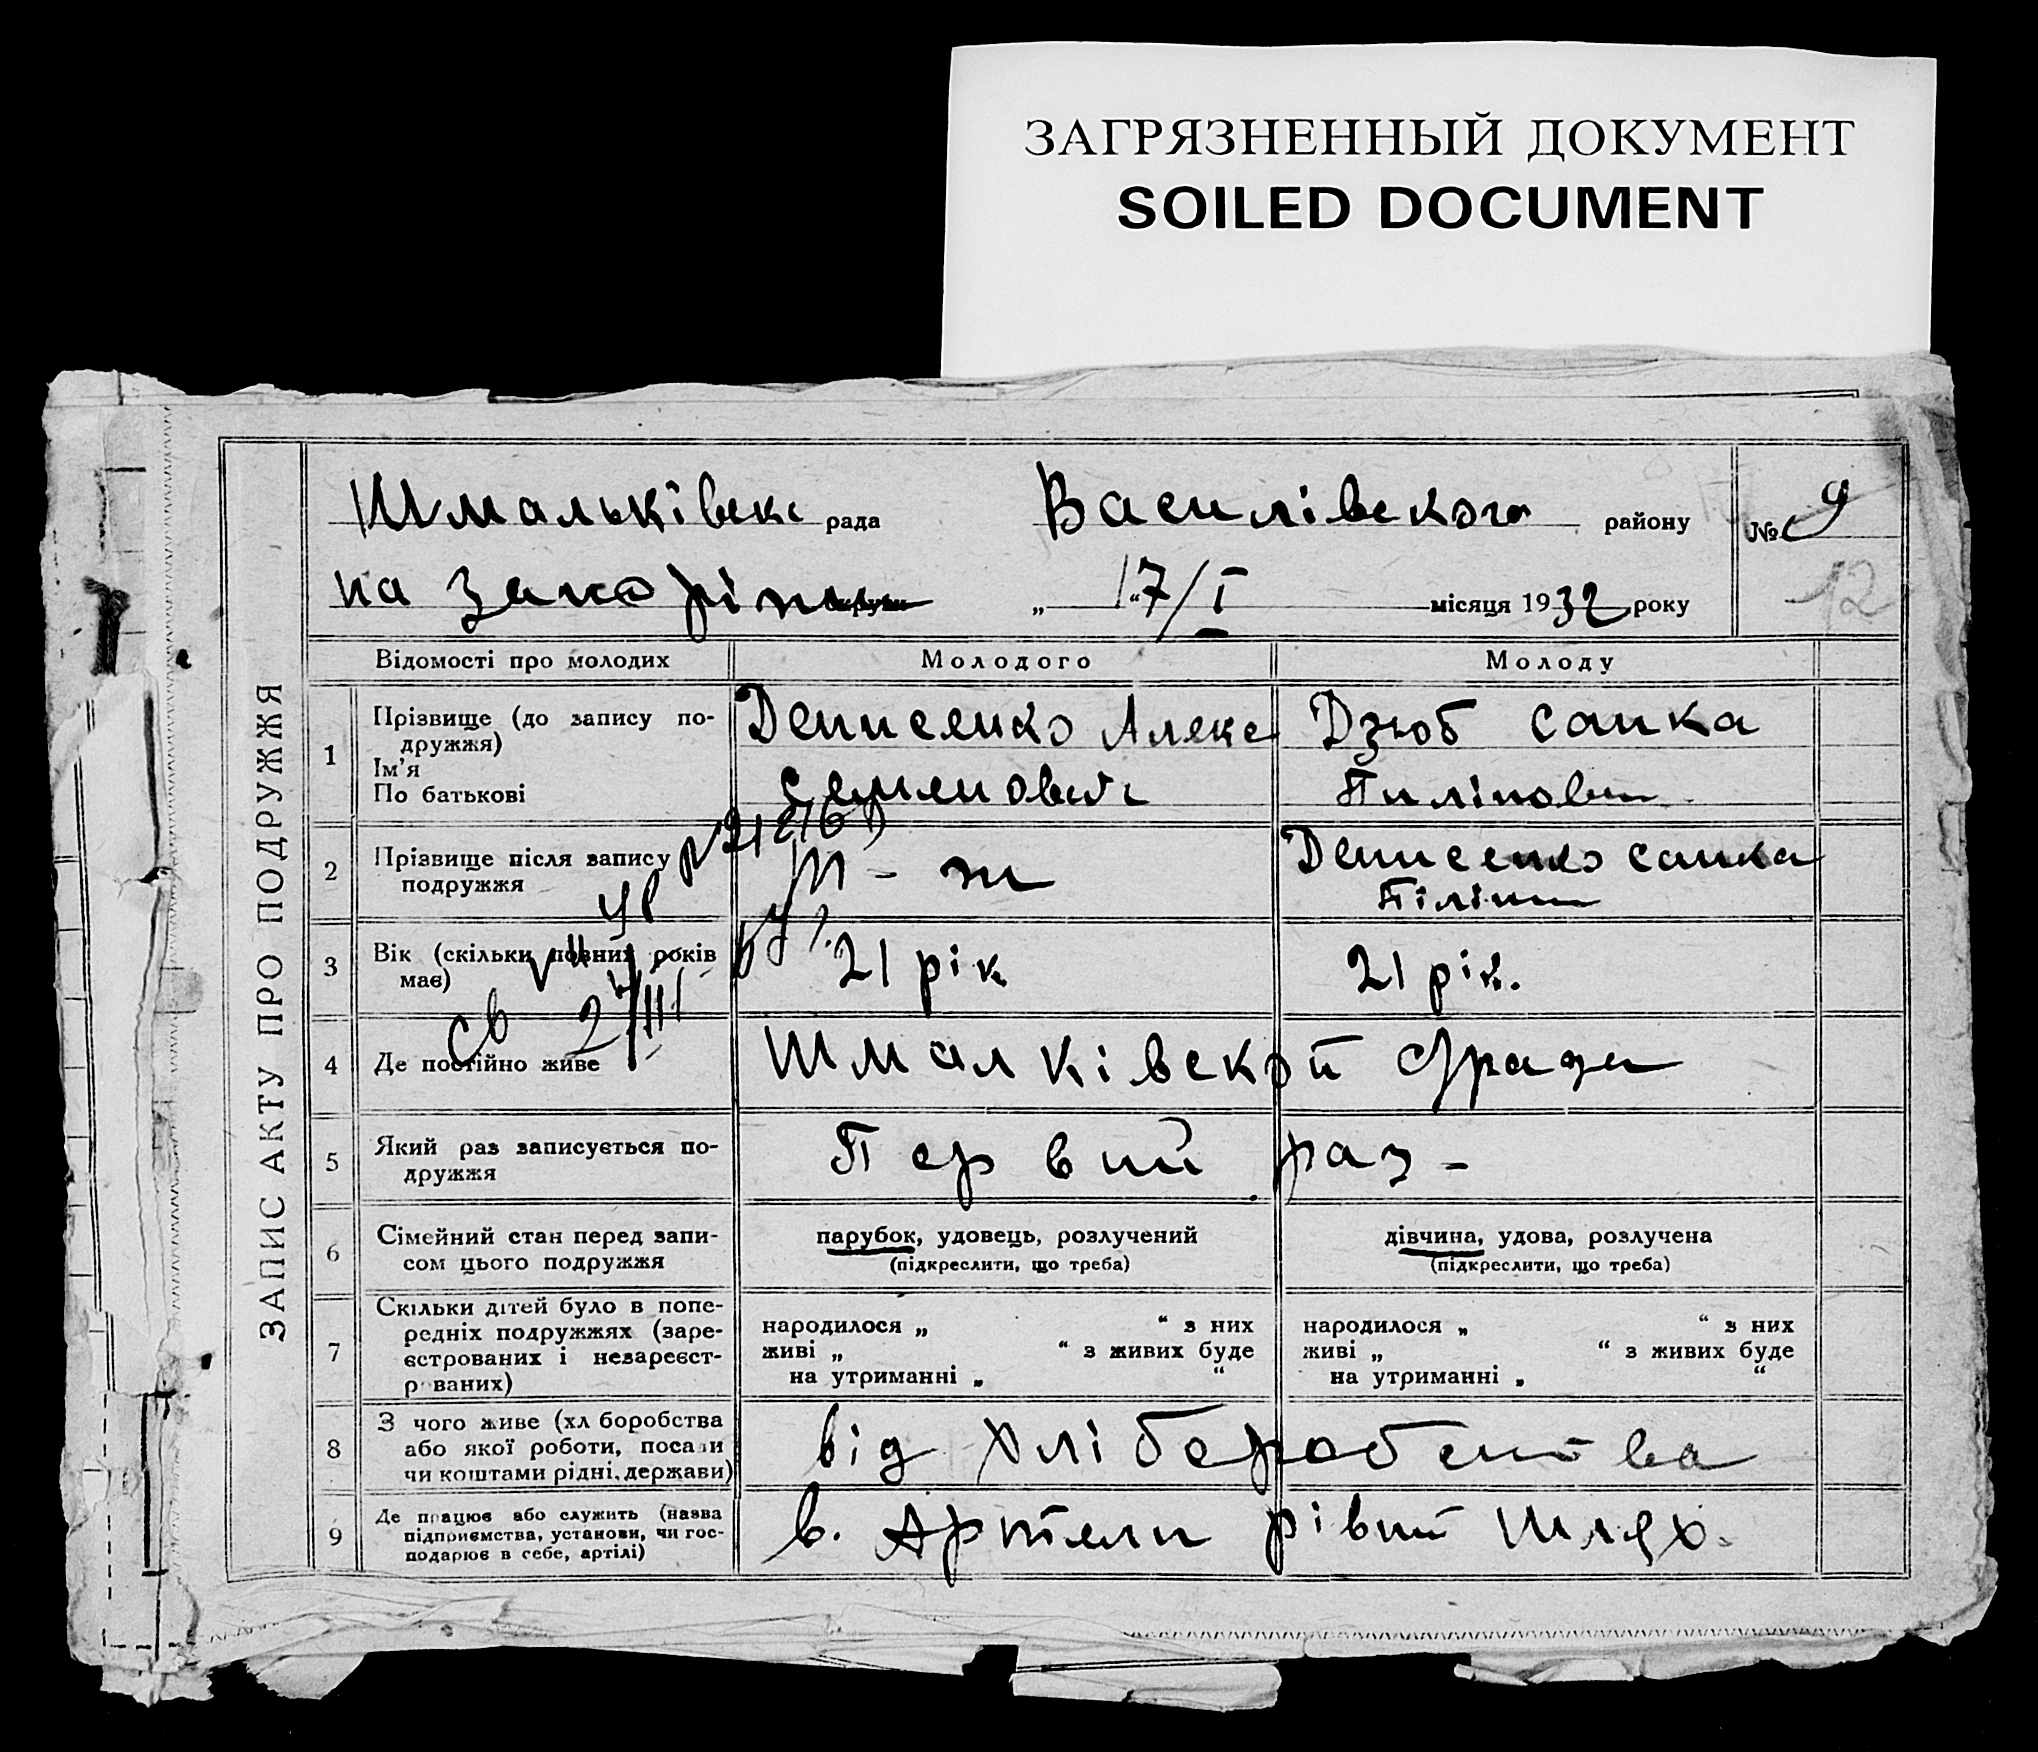 ЗАГРЯЗНЕННЫЙ ДОКУМЕНТ
SOILED DOCUMENT
ЗАПИС АКТУ ПРО ПОДРУЖЖЯ
Шмальківске рада Василівского району № 9
на „ 17/I “ місяця 1932 року 12
Відомості про молодих Молодого Молоду
1 Прізвище (до запису по-
дружжя)
Ім'я
По батькові
Денисенко Алекс
Семенович
Дзюб Санка
Пиліповн
2 Прізвище після запису
подружжя
Т - ж
Денисенко Санка
Піліп
3 Вік (скільки повних років
має)
21 рік
21 рік.
св 2
4 Де постійно живе
Шмалківской с/ради
5 Який раз записується по-
дружжя
Первий раз -
6 Сімейний стан перед запи-
сом цього подружжя
парубок, удовець, розлучений
(підкреслити, що треба)
дівчина, удова, розлучена
(підкреслити, що треба)
7 Скільки дітей було в попе-
редніх подружжях (заре-
єстрованих і незареєст-
р ваних)
народилося „ “ з них
живі „ “ з живих буде
на утриманні „ “
народилося „ “ з них
живі „ “ з живих буде
на утриманні „ “
8 З чого живе (хл боробства
або якої роботи, посади
чи коштами рідні, держави)
від хліборобства
9 Де працює або служить (назва
підприємства, установи, чи гос-
подарює в себе, артілі)
в. Артели рівний Шлях.